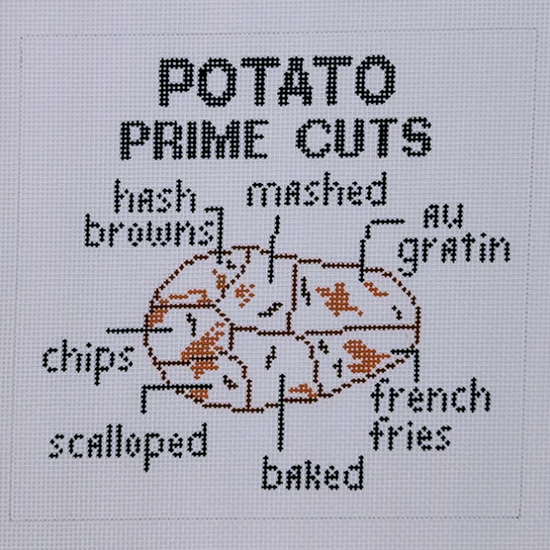 POTATO
PRIME CUTS
hash
browns
mashed
au
gratin
chips
french
fries
scalloped
baked